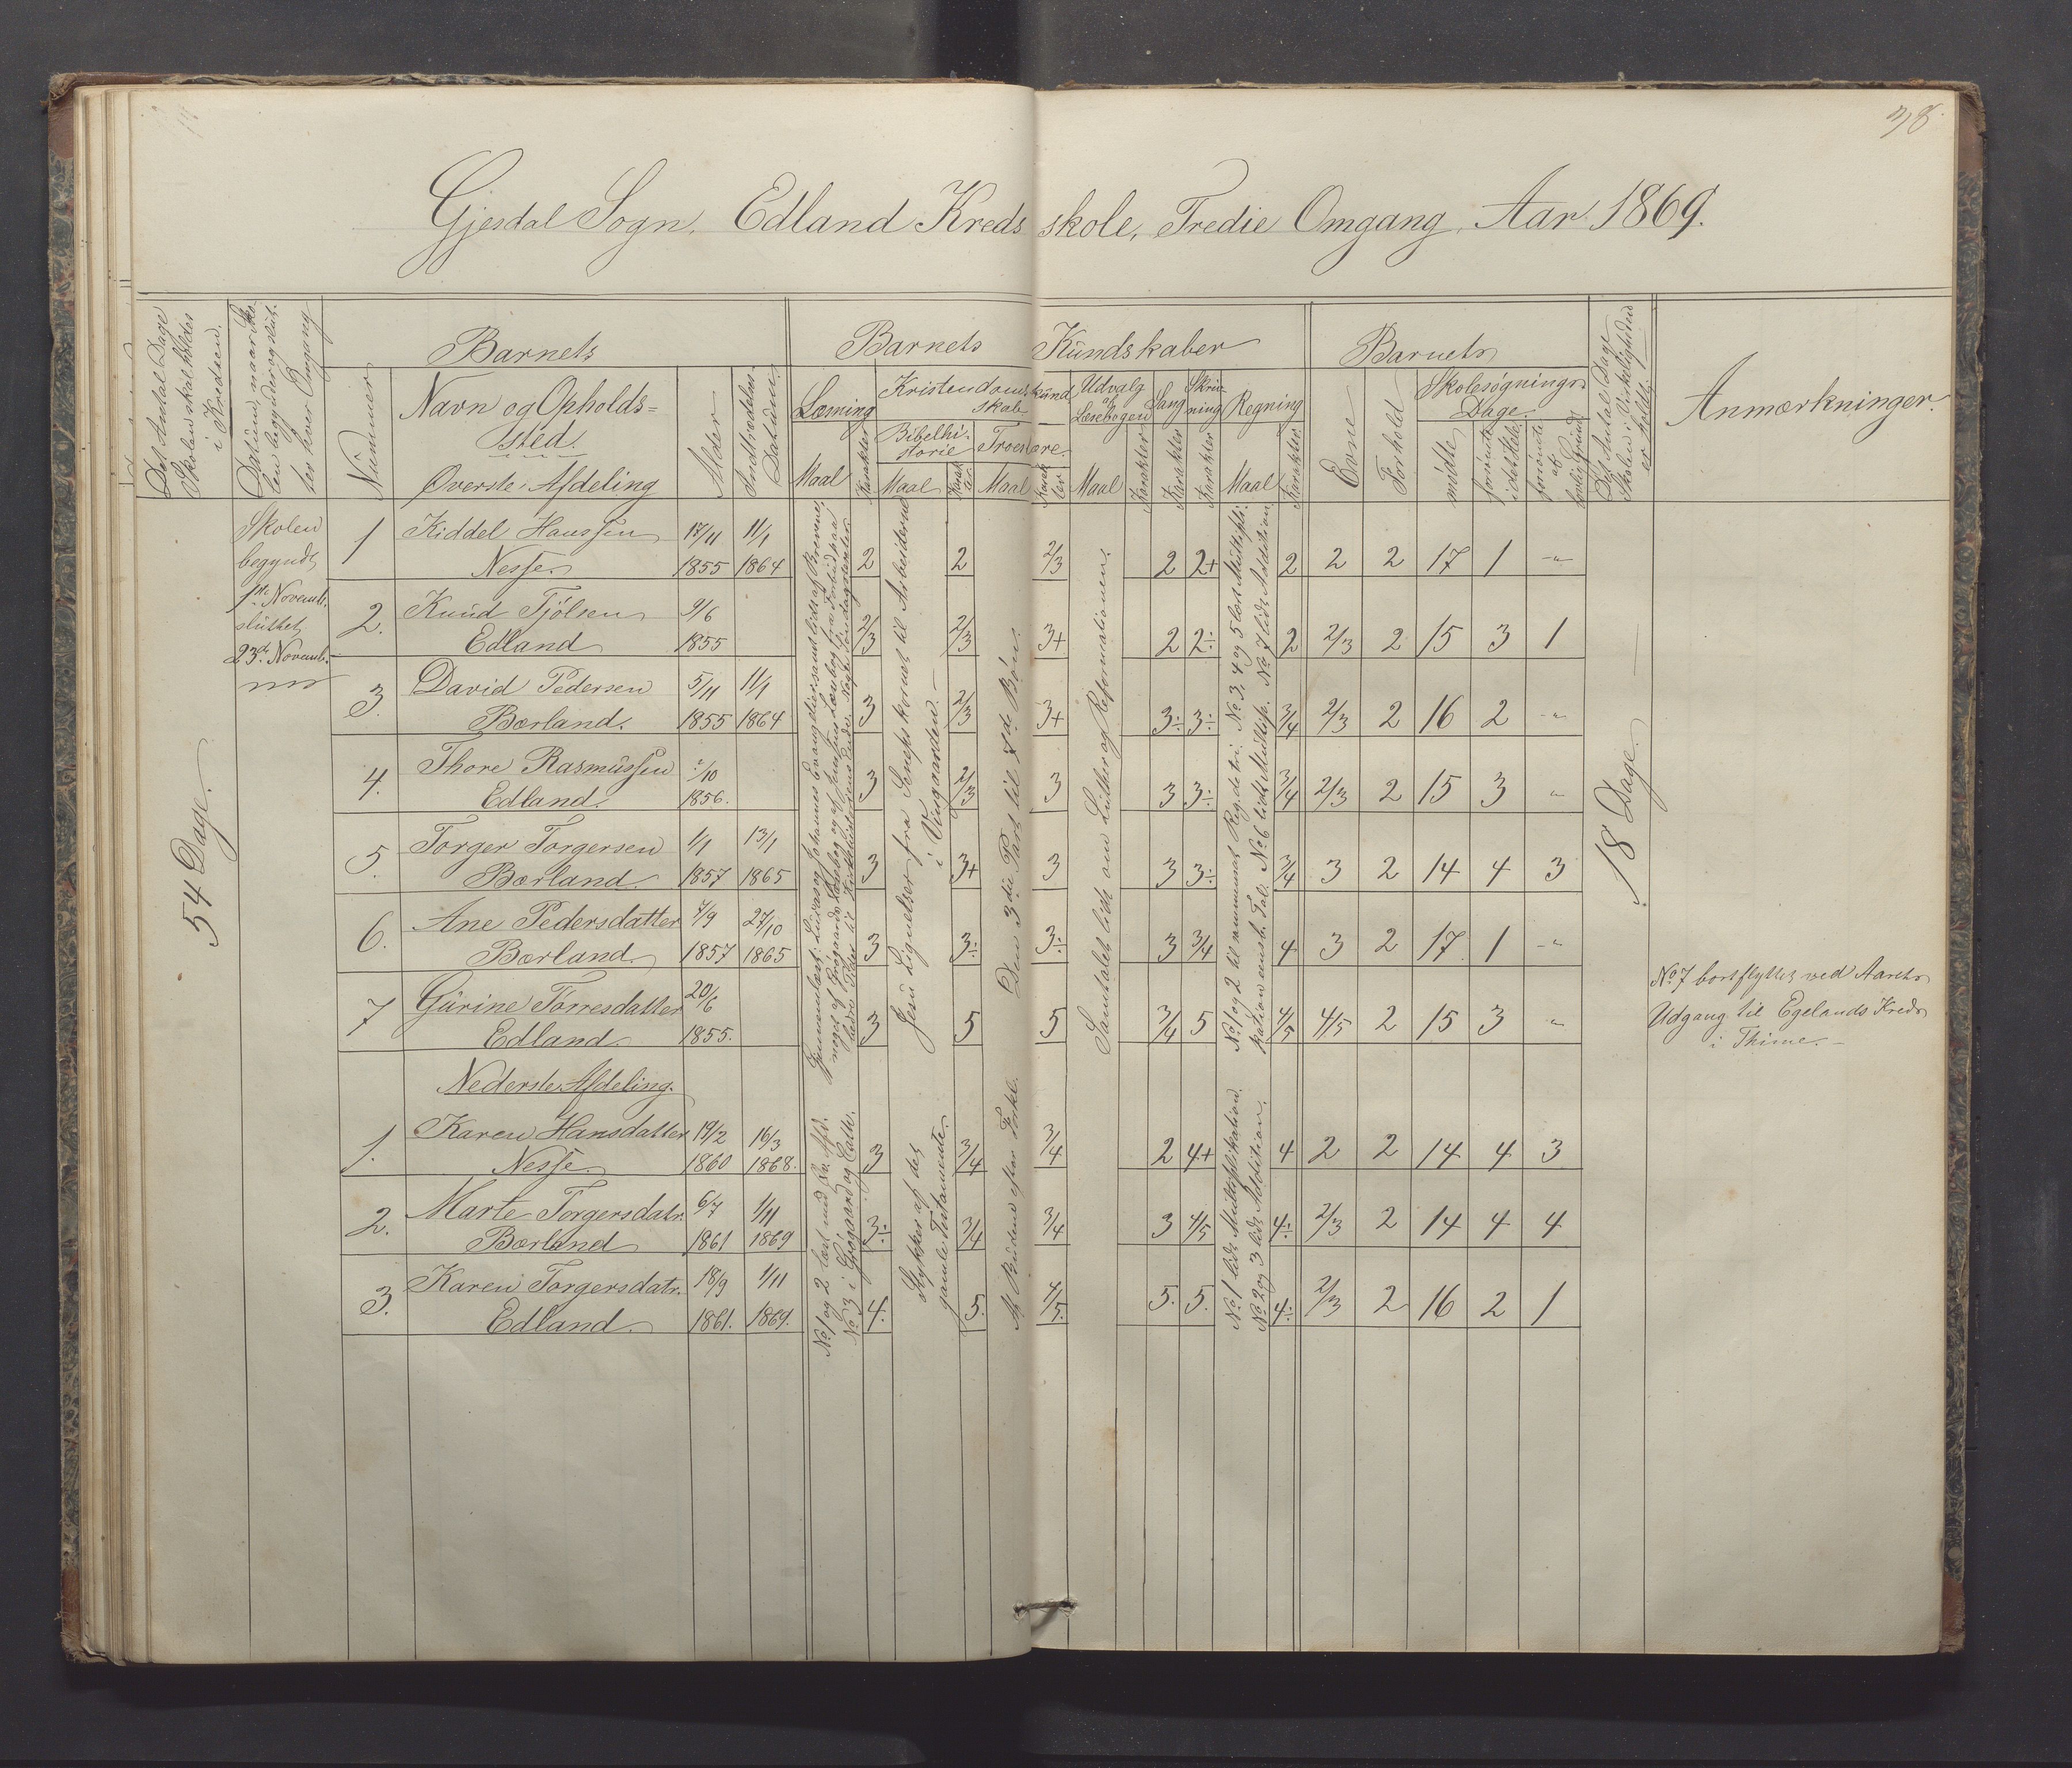 38
Gjesdal Sogn. Edland Kredsskole, Tredie Omgang, Aar 1869.
Det Antal Dage Skolen skal holdes i Kredsen.
Datum, naar Skolen begynder og slutter hver Omgang
Barnets
Nummer
Navn og Opholdssted.
Øverste Afdeling
Alder
Indtrædelses Datum.
Barnets Kundskaber
Læsning
Maal
Karakter
Kristendomskundskab
Bibelhistorie
Maal
Karakter
Troeslære.
Maal
Karakter
Udvalg af Læsebogen
Maal
Karakter
Sang
Karakter
Skrivning
Karakter
Regning
Maal
Karakter.
Barnets
Evne
Forhold
Skolesøgnings Dage.
mødte
forsømte i det Hele.
forsømte af lovlig Grund
Det Antal Dage Skolen i Virkeligheden er holdt.
Anmærkninger.
54 Dage.
Skolen
begyndt
1ste Novemb.
sluttet
23de Novemb.
1 Kiddel Hanssen 17/11 11/1
Nesse. 1855 1864 2 2 2/3 2 2+ 2 2 2 17 1 "
2. Knud Tjølsen 9/6
Edland 1855 2/3 2/3 3+ 2 2÷ 2 2/3 2 15 3 1
3. David Pedersen 5/11 11/1
Bærland. 1855 1864 3 2/3 3+ 3÷ 3÷ 3/4 2/3 2 16 2 "
4. Thore Rasmussen /10
Edland. 1856. 3 2/3 3 3 3÷ 3/4 2/3 2 15 3 "
5. Torger Torgersen 1/1 13/1
Bærland. 1857 1865 3 3+ 3 3 3÷ 3/4 3 2 14 4 3
6. Ane Pedersdatter /9 27/10
Bærland. 1857 1865 3 3÷ 3÷ 3 3/4 4 3 2 17 1 "
7 Gurine Tørresdatter 20/6
Edland. 1855. 3 5 5 3/4 5 4/5 4/5 2 15 3 "
Nederste Afdeling.
1. Karen Hansdatter 19/2 16/3
Nesse. 1860 1868. 3 3/4 3/4 2 4+ 4 2 2 14 4 3
2. Marte Torgersdatr. 6/7 1/11
Bærland 1861 1869 3÷ 3/4 3/4 3 4/5 4÷ 2/3 2 14 4 4
3. Karen Torgersdatr. 18/9 1/11
Edland. 1861. 1869. 4. 5. 4/5. 5. 5. 4÷ 2/3 2 16 2 1
Gjennemlæst: Lukas og Johannes Evangelier samt lidt af Brevene,
noget af Grøgaards Læsebog og af Jensens Læsebog fra
No 1 og 2 læst med Øv. Afd.
No 3 i Grøgaard og Cath.
Jesu Lignelser fra Senepskornet til Arbeiderne
i Viingaarden.
Stykker af det
gamle Testamente.
Den 3die Part til 7de Bøn.
Af Budene efter Forkl.
Samtalet lidt om Luther og Reformationen.
No 1 og 2 til Reg. de tri. No 3, 4 og 5 lært Multipli-
kation eensb. Tal. No 6 lidt Multip. No 7 lidt Addition
No 1 lidt Multiplikation.
No 2 og 3 lidt Addition.
18 Dage.
No 7 bortflyttet ved Aarets
Udgang til Egelands Kreds
i Thime.